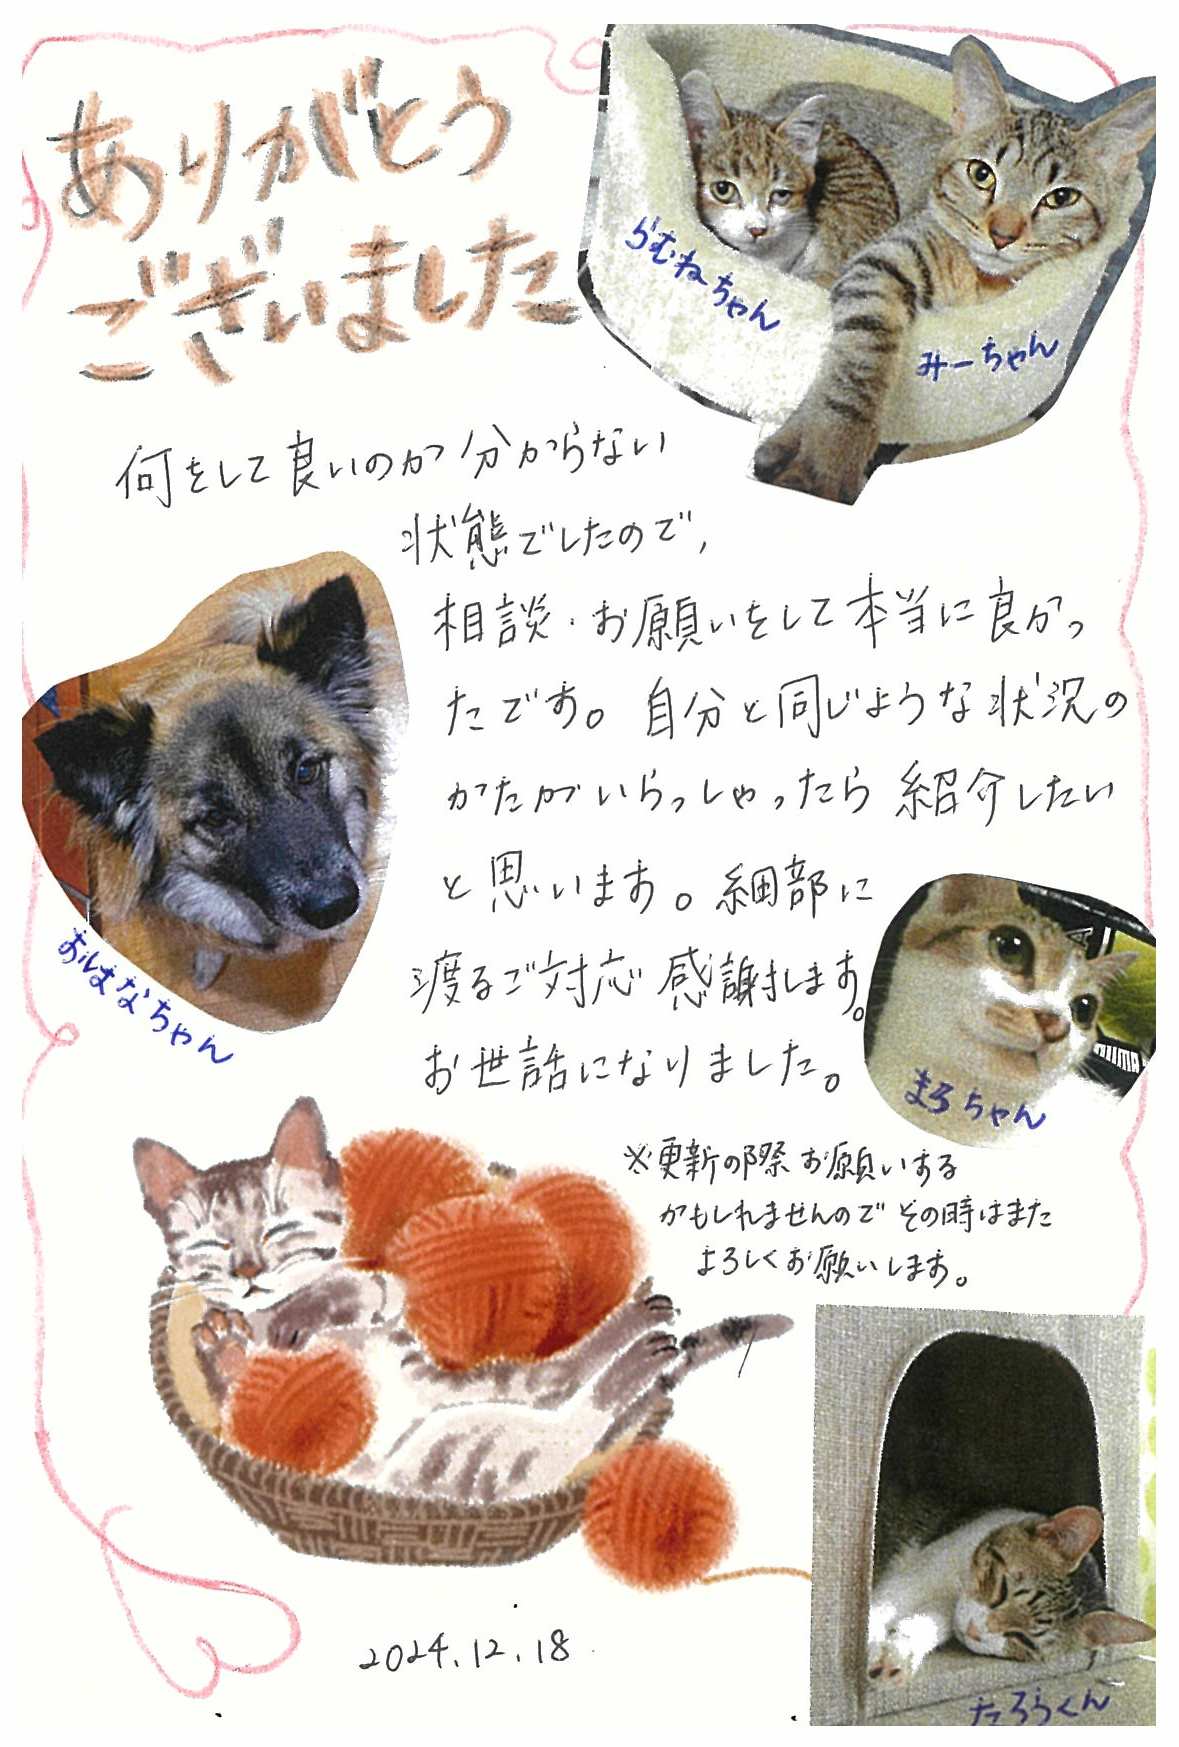 ありがとう
ございました
らむねちゃん
みーちゃん
何をして良いのか分からない
状態でしたので、
相談・お願いをして本当に良かっ
たです。自分と同じような状況の
かたがいらっしゃったら紹介したい
と思います。細部に
渡るご対応感謝します。
お世話になりました。
おはなちゃん
まろちゃん
※更新の際お願いする
かもしれませんのでその時はまた
よろしくお願いします。
たろうくん
2024.12.18